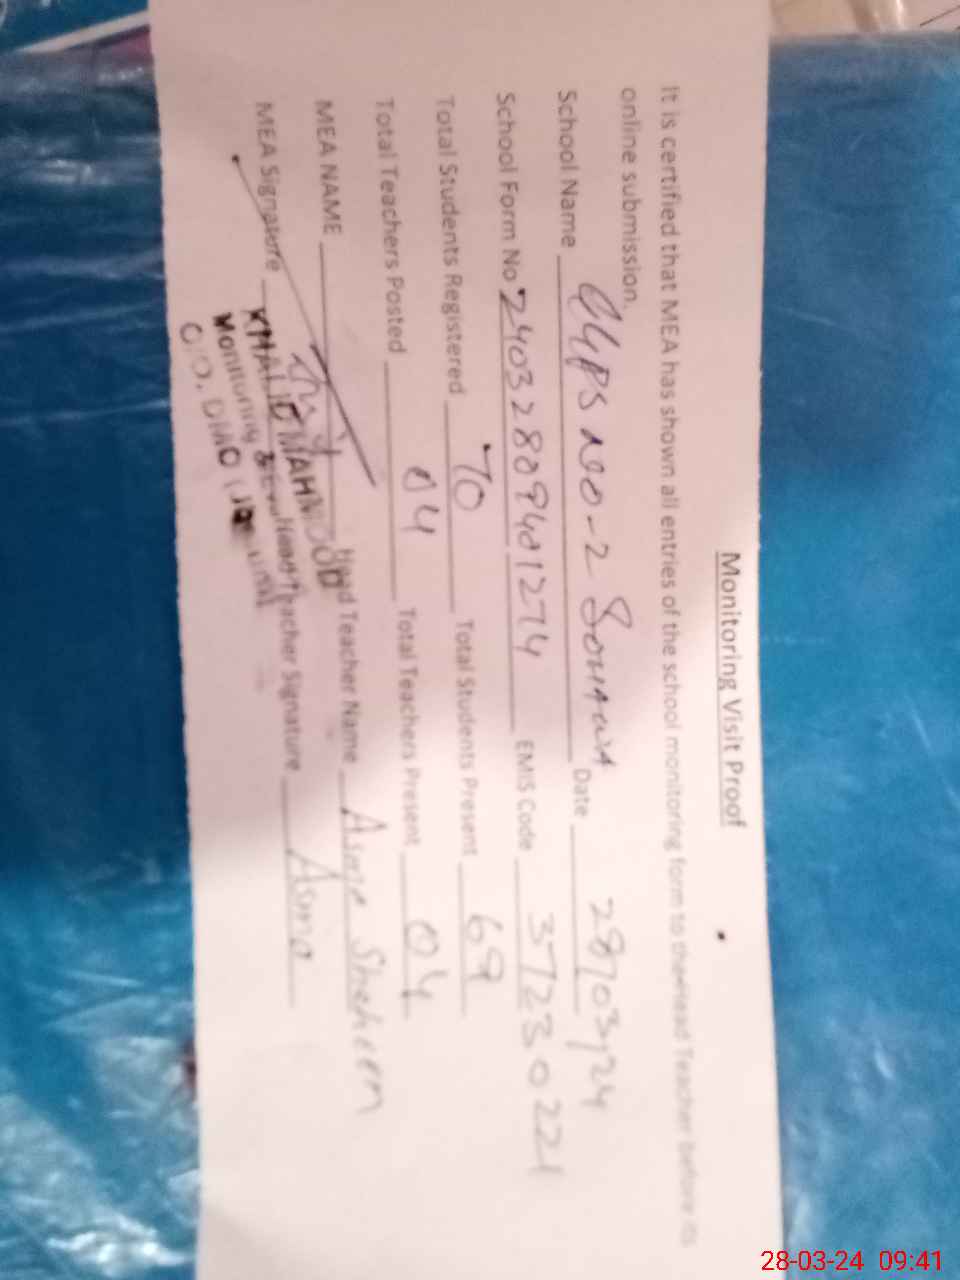 Monitoring Visit Proof
It is certified that MEA has shown all entries of the school monitoring form to the Head Teacher before its
online submission.
School Name GGPS NO-2 Sohawa Date 28/03/24
School Form No 24032809401274 EMIS Code 37230221
Total Students Registered 70 Total Students Present 69
Total Teachers Posted 04 Total Teachers Present 04
MEA NAME Head Teacher Name Asma Shaheen
MEA Signature Head Teacher Signature Asma
KHALID MAHMOOD
Monitoring &
O/O. DMO
28-03-24 09:41